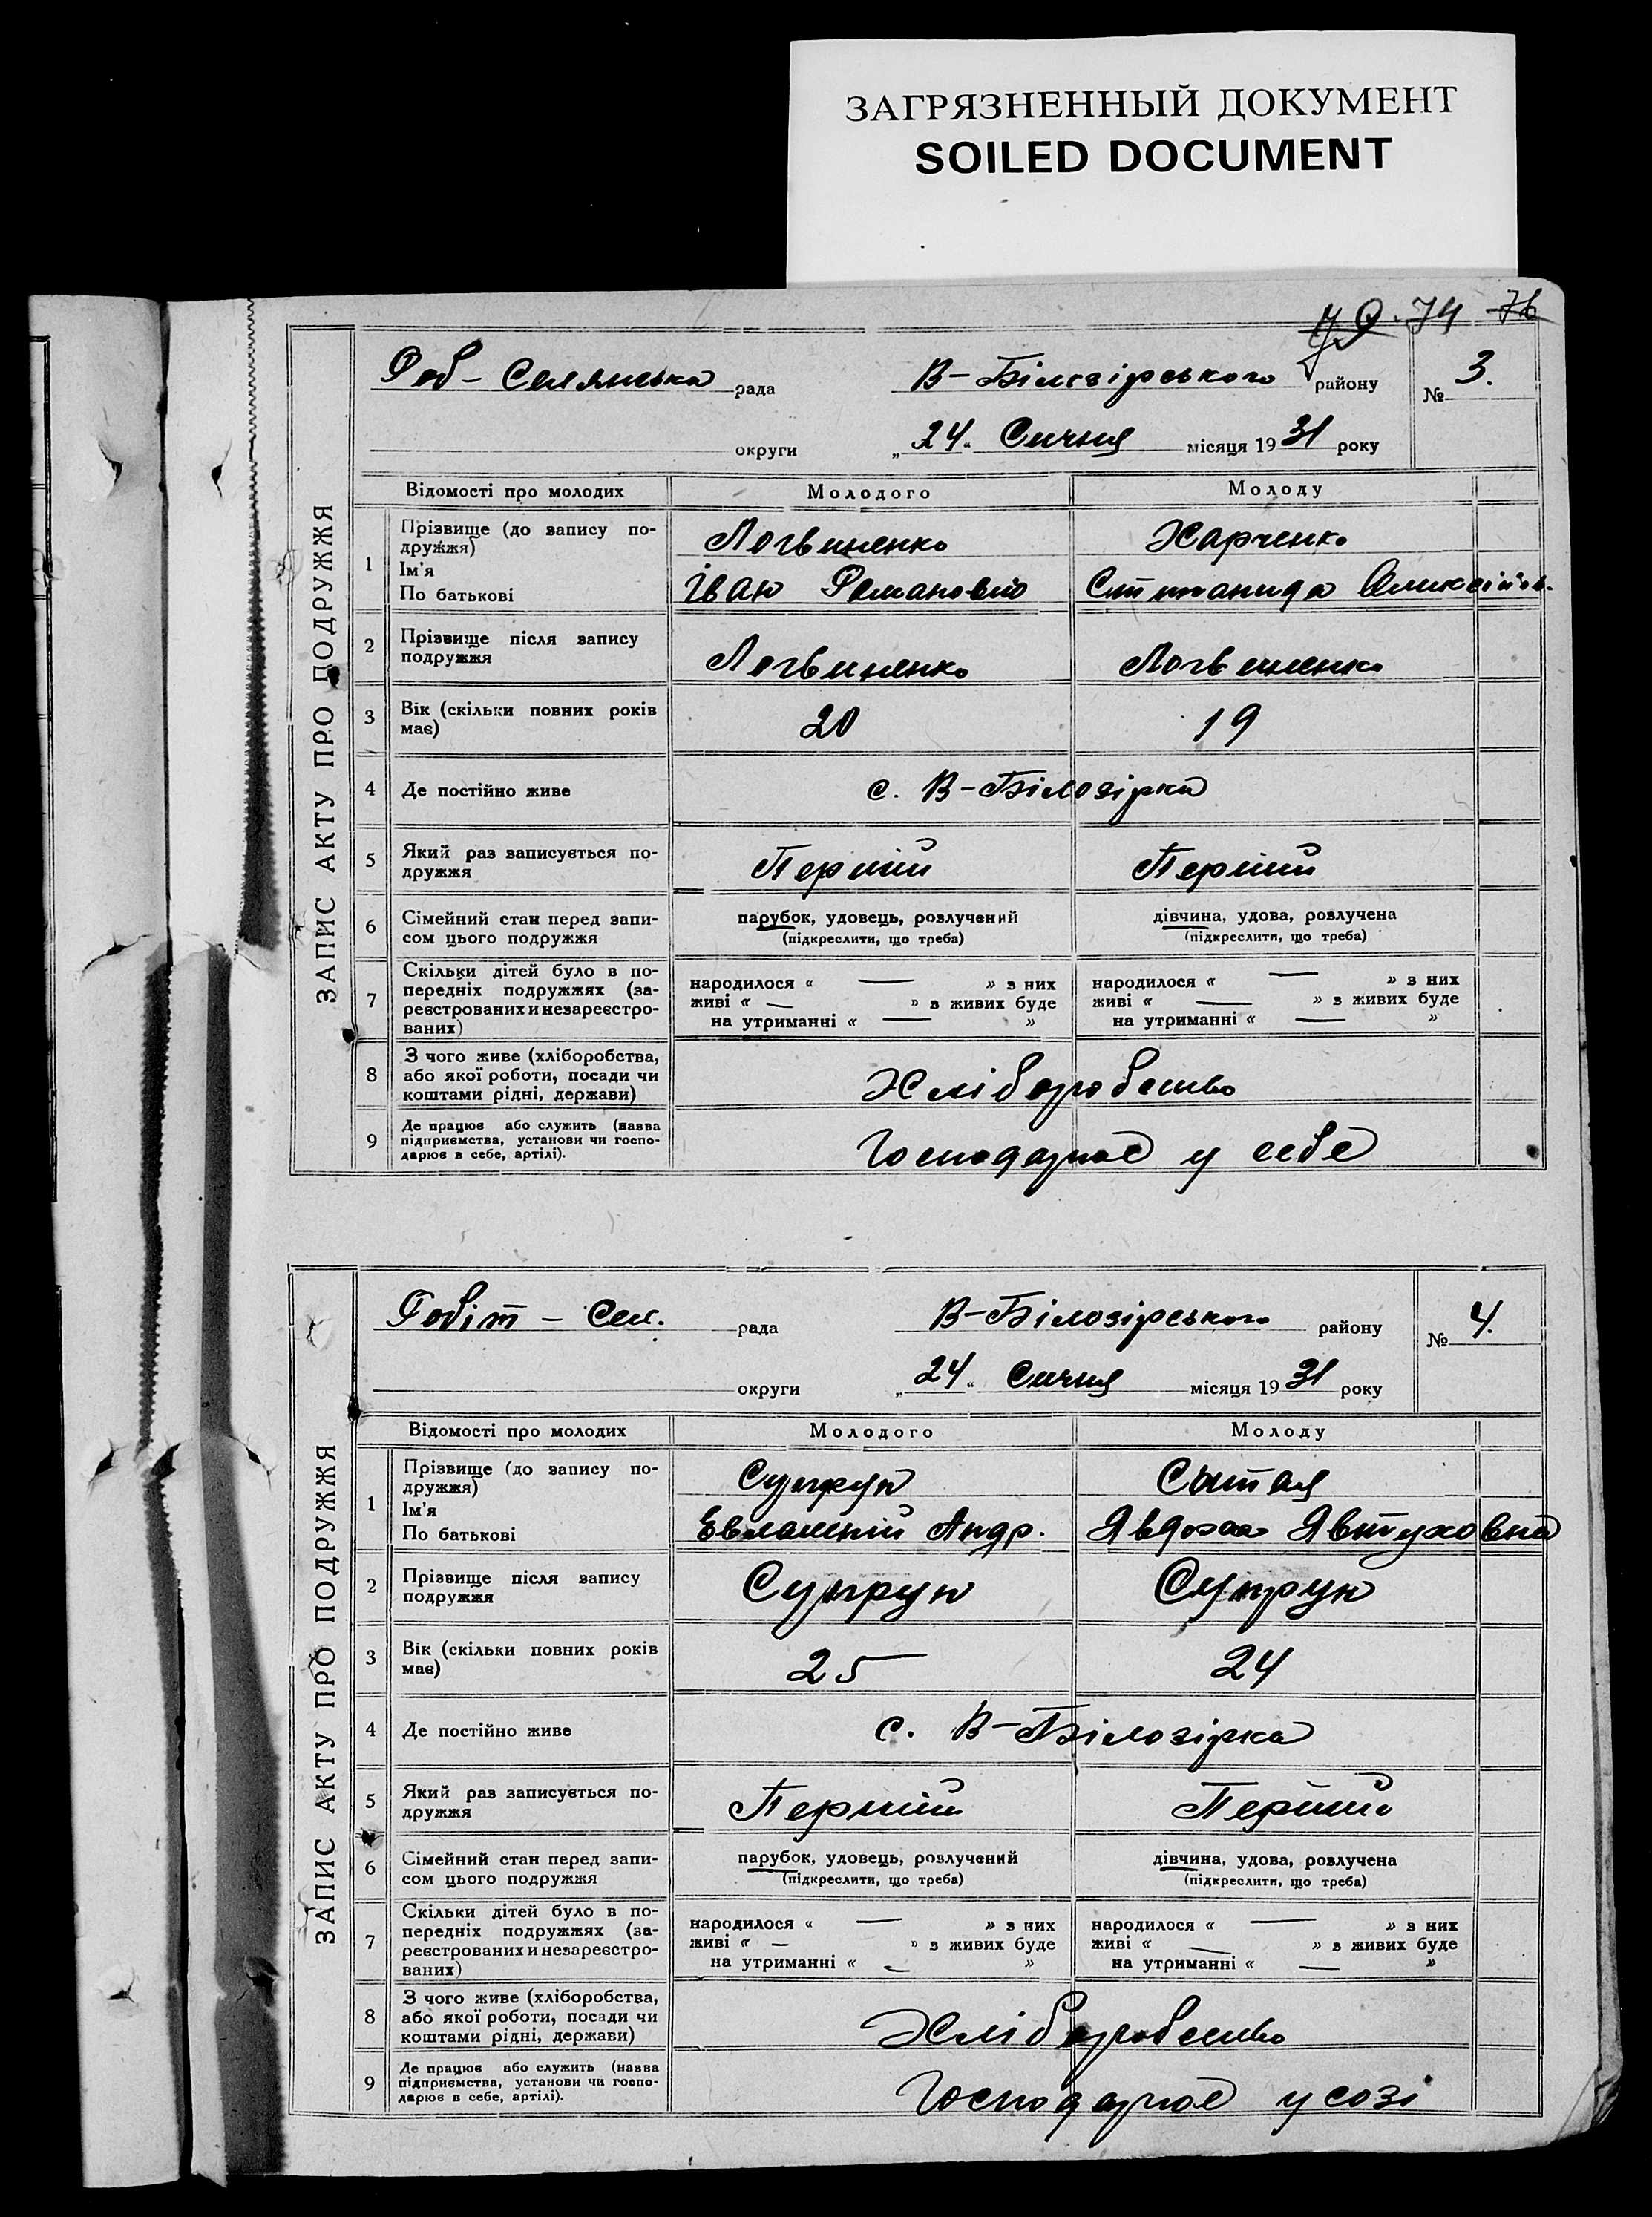 ЗАГРЯЗНЕННЫЙ ДОКУМЕНТ
SOILED DOCUMENT
74 76
ЗАПИС АКТУ ПРО ПОДРУЖЖЯ
Роб-Селянська рада В-Білозірського району № 3.
округи „24" Сичня місяця 1931 року
Відомості про молодих Молодого Молоду
1 Прізвище (до запису по-
дружжя) Логвиненко Харченко
Ім'я
По батькові Іван Романовић Степанида Оликсіїов.
2 Прізвище після запису
подружжя Логвиненко Логвиненко
3 Вік (скільки повних років
має) 20 19
4 Де постійно живе с. В-Білозірка
5 Який раз записується по-
дружжя Перший Перший
6 Сімейний стан перед запи-
сом цього подружжя парубок, удовець, розлучений дівчина, удова, розлучена
(підкреслити, що треба) (підкреслити, що треба)
7 Скільки дітей було в по-
передніх подружжях (за-
реєстрованих и незареєстро-
ваних)
народилося « — » з них народилося « — » з них
живі « — » з живих буде живі « — » з живих буде
на утриманні « — » на утриманні « — »
8 З чого живе (хліборобства,
або якої роботи, посади чи
коштами рідні, держави) Хліборобство
9 Де працює або служить (назва
підприємства, установи чи госпо-
дарює в себе, артілі). Господарює у себе
ЗАПИС АКТУ ПРО ПОДРУЖЖЯ
Робіт - Сел. рада В-Білозірського району № 4.
округи „24" Сичня місяця 1931 року
Відомості про молодих Молодого Молоду
1 Прізвище (до запису по-
дружжя) Супрун Сытая
Ім'я
По батькові Евлампій Андр. Явдоха Явтуховна
2 Прізвище після запису
подружжя Супрун Супрун
3 Вік (скільки повних років
має) 25 24
4 Де постійно живе с. В-Білозірка
5 Який раз записується по-
дружжя Перший Перший
6 Сімейний стан перед запи-
сом цього подружжя парубок, удовець, розлучений дівчина, удова, розлучена
(підкреслити, що треба) (підкреслити, що треба)
7 Скільки дітей було в по-
передніх подружжях (за-
реєстрованих и незареєстро-
ваних)
народилося « — » з них народилося « — » з них
живі « — » з живих буде живі « — » з живих буде
на утриманні « — » на утриманні « — »
8 З чого живе (хліборобства,
або якої роботи, посади чи
коштами рідні, держави) Хліборобство
9 Де працює або служить (назва
підприємства, установи чи госпо-
дарює в себе, артілі). Господарює у созі